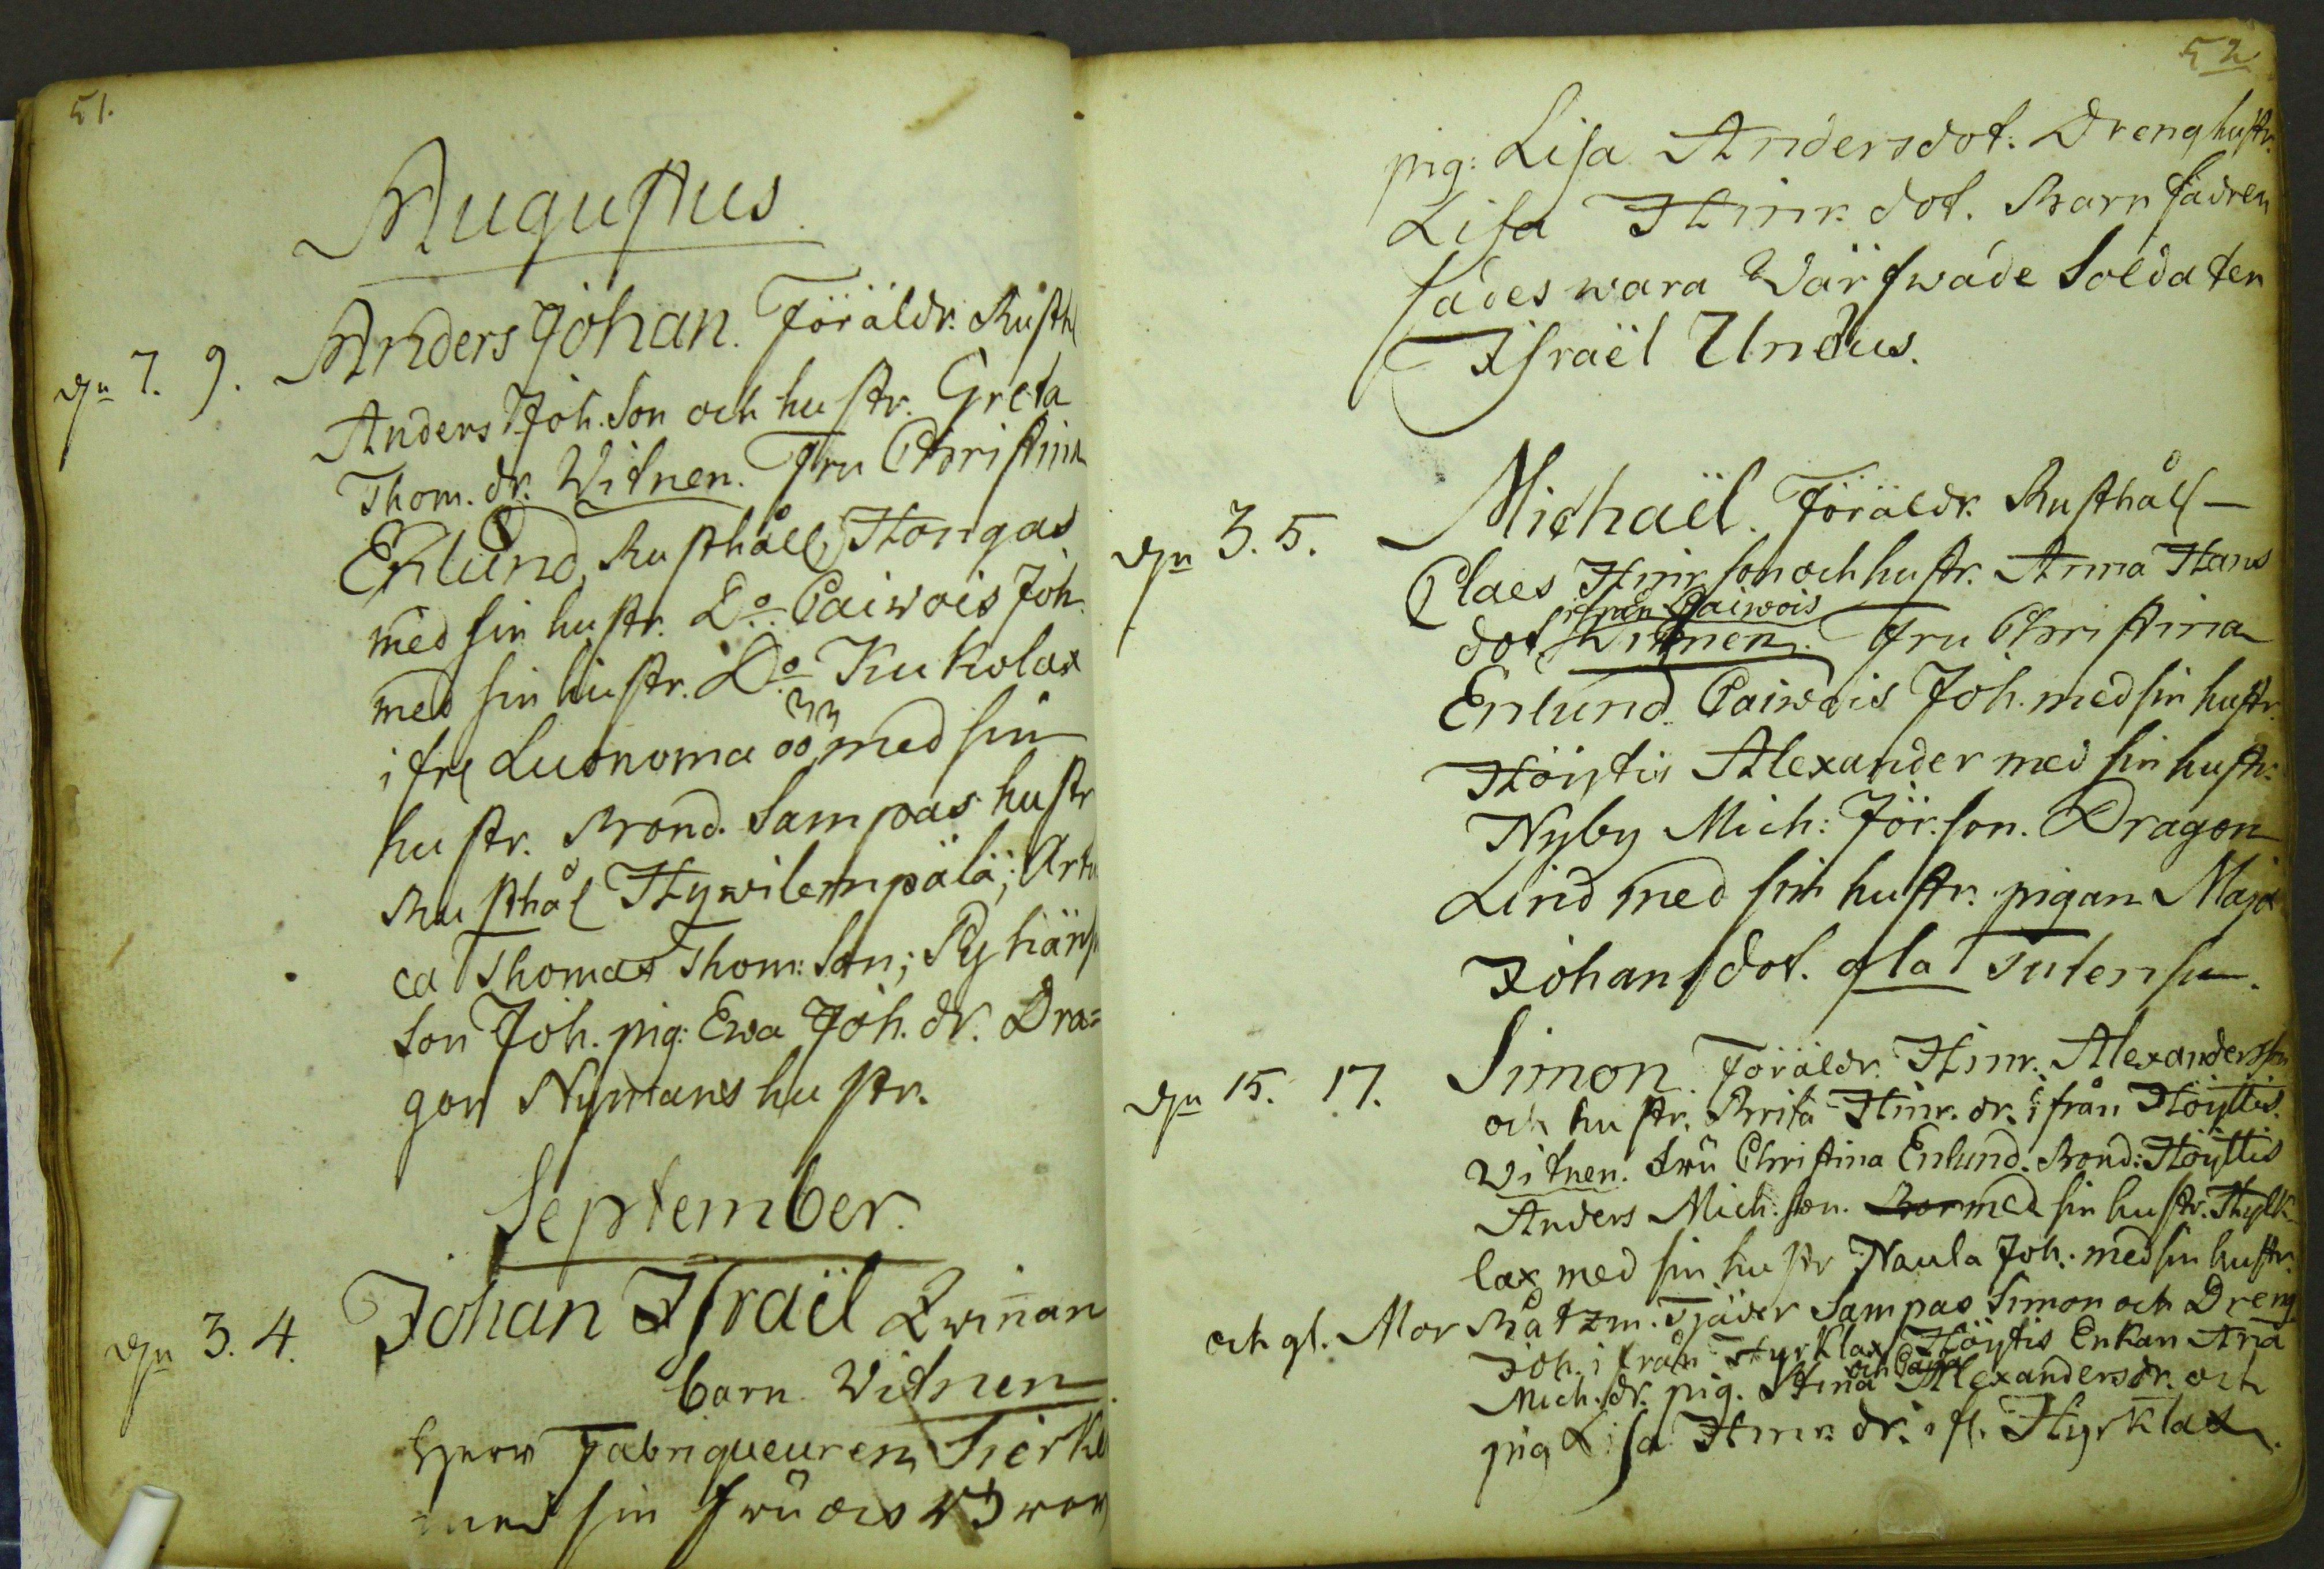 51.
Augustus
dn 7. 9. Anders Johan. Föräldr. Rusth
Anders Joh. Son och hustr. Greta
Thom. dr. Witnen. Fru Christina
Enlund, Rusthåll, Hongas
med sin hustr. Do. Paiwois Joh.
med sin hustr. Do Kukolax
ifrå Luonoma med sin
hustr. Bond. Sampas hustr
Rusthål Hywilempälä; Artu
ca Thomas Thom: Son; Pyhäns
Son Joh. pig: Ewa Joh. dr. Dra=
gon Nymans hustr.
September.
dn 3. 4. Johan Israël Qwinnan
barn. Witnen
Herr Fabriqueuren
med sin fru och
52
pig: Lisa Andersdot: Dreng hustr.
Lisa Hinr. dot. Barn fadren
sades wara Wärfwade Soldaten
Israël Undus.
dn 3. 5. Michaël. Föräldr. Rusthåll
Claes Hinr son och hustr. Anna Hans
ifrån Paiwois
dot Witnen. Fru Christina
Enlund. Paiwois Joh. med sin hustr.
Höijtis Alexander med sin hustr:
Nyby Mich: Jör. son. Dragon
Lind med sin hustr: pigan Maja
Johans dot.
dn 15. 17. Simon. Föräldr. Hinr. Alexandersson
och hustr. Brita Hinr. dr. ifrån Höijttis.
Witnen. Fru Christina Enlund. Bond: Höijttis
Anders Mich: son. med sin hustr.
lax med sin hustr Naula Joh. med sin hustr.
och gl. Mor Båtzm. Tjäder Sampas Simon och Dreng
Joh. ifrån Hyrklax Höijtis Enkan Ana
och Caisa
Mich. dr. pig. Stina Alexandersdr. och
pig Lisa Hinr. dr. ifr. Hyrklax.